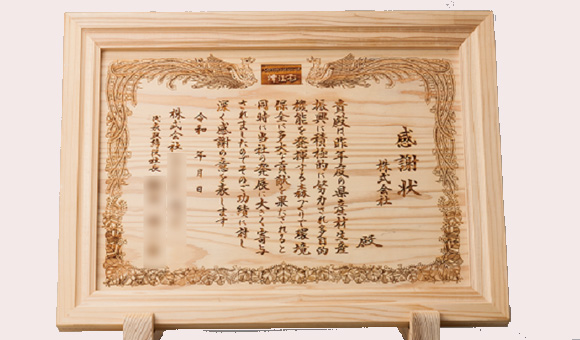 感謝状
株式会社
殿
貴殿は昨年度の県産材生産
振興に積極的に努力され多目的
機能を発揮する森づくりで環境
保全に多大な貢献を果たされると
同時に当社の発展に大きく寄与
されましたのでその功績に対し
深く感謝の意を表します
令和 年 月 日
株式会社
代表取締役社長